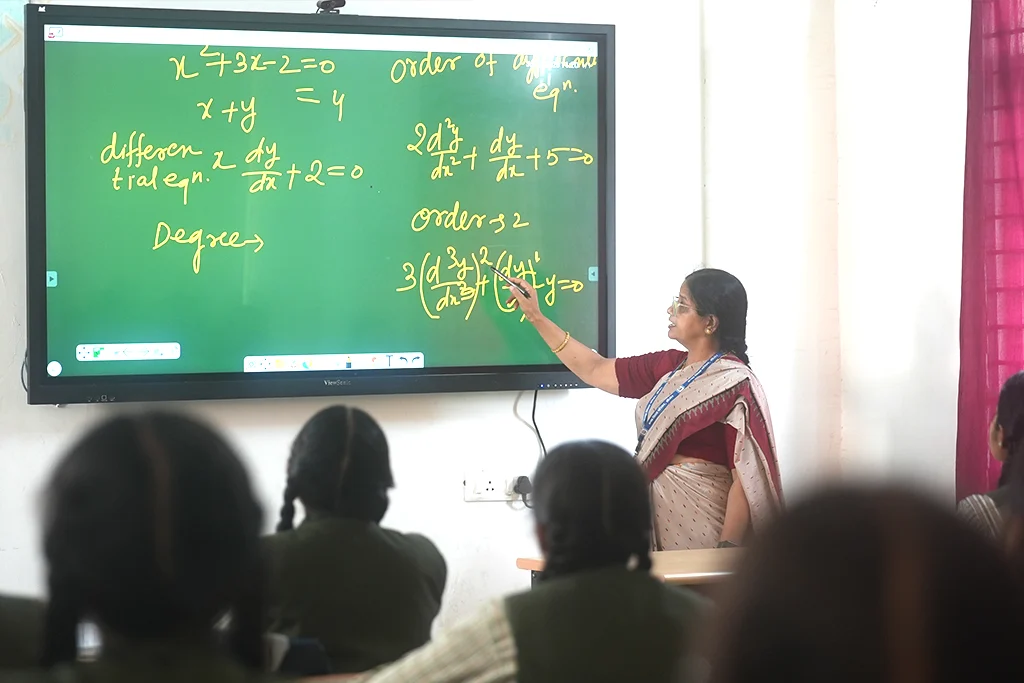 x²+3x-2=0
x+y = y
differen
tial eqn. x dy/dx + 2=0
Degree→
order of
eqⁿ.
2 d²y/dx² + dy/dx + 5=0
order → 2
3(d³y/dx³)² + (dy y=0
ViewSonic